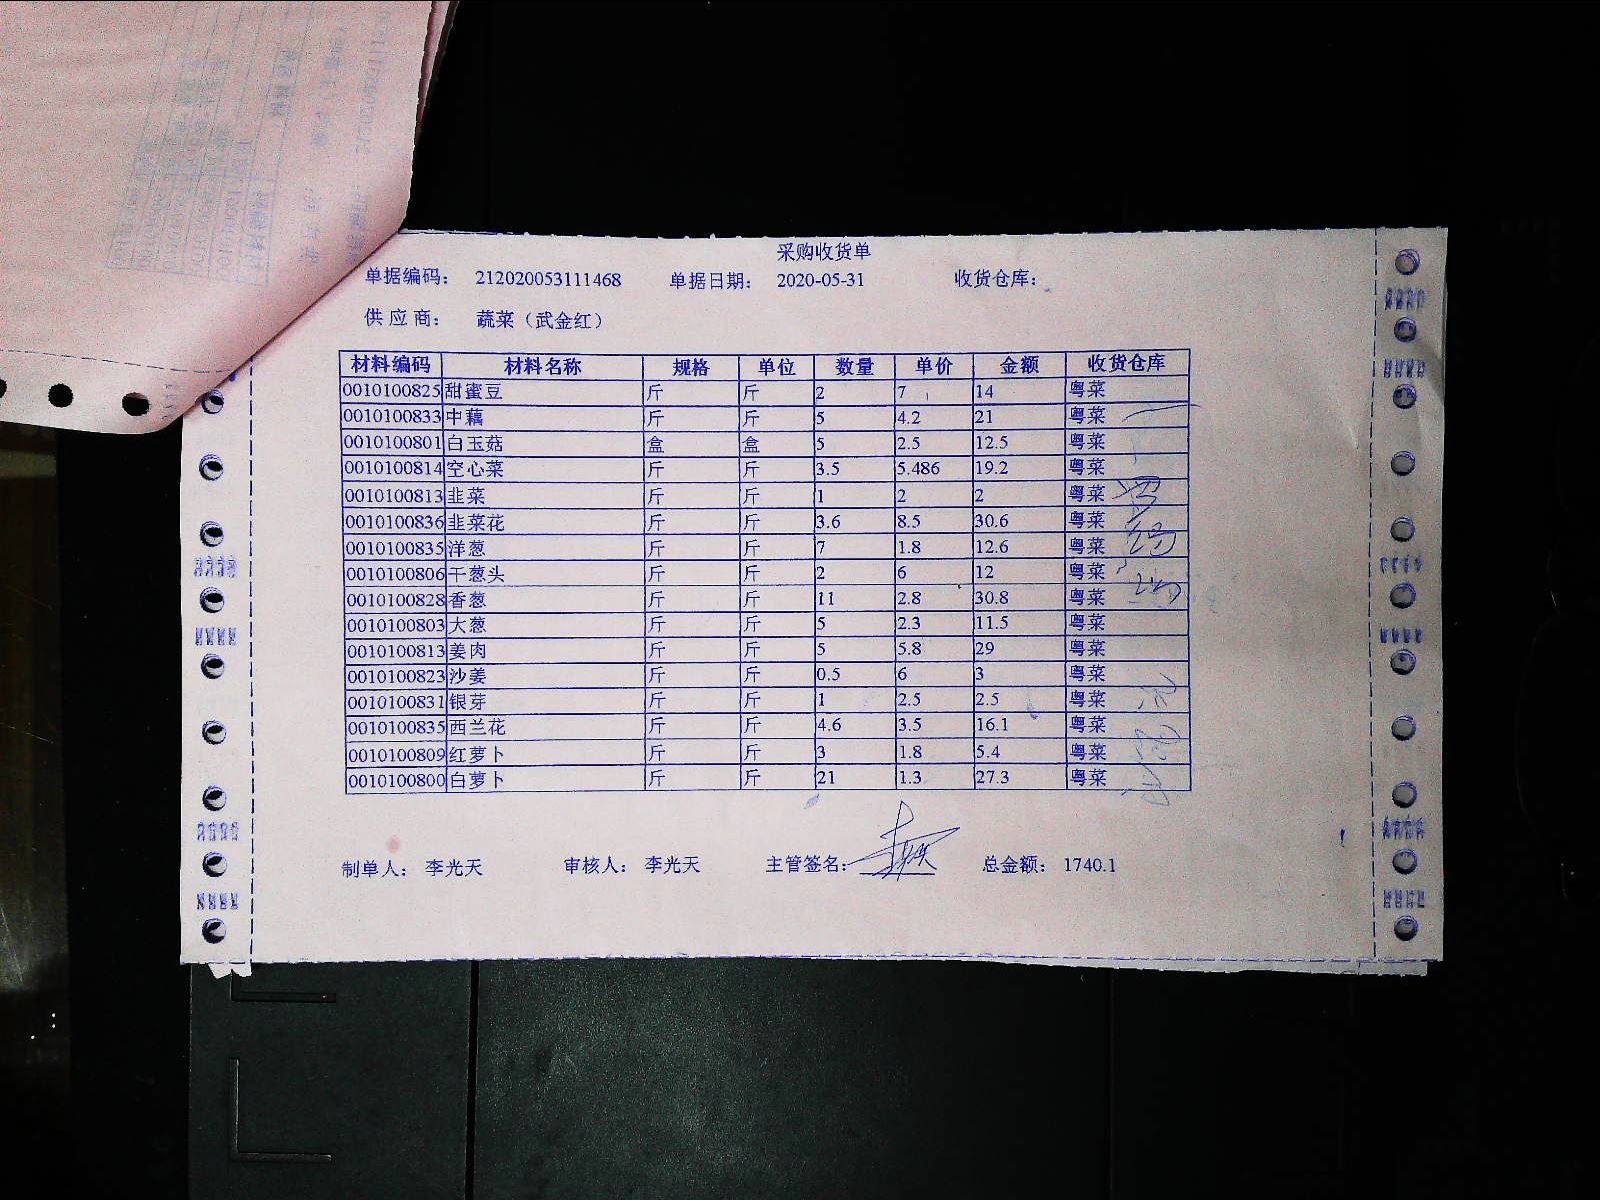 采购收货单
单据编码： 212020053111468 单据日期： 2020-05-31 收货仓库：
供应商： 蔬菜（武金红）
材料编码 材料名称 规格 单位 数量 单价 金额 收货仓库
0010100825 甜蜜豆 斤 斤 2 7 14 粤菜
0010100833 中藕 斤 斤 5 4.2 21 粤菜
0010100801 白玉菇 盒 盒 5 2.5 12.5 粤菜
0010100814 空心菜 斤 斤 3.5 5.486 19.2 粤菜
0010100813 韭菜 斤 斤 1 2 2 粤菜
0010100836 韭菜花 斤 斤 3.6 8.5 30.6 粤菜
0010100835 洋葱 斤 斤 7 1.8 12.6 粤菜
0010100806 干葱头 斤 斤 2 6 12 粤菜
0010100828 香葱 斤 斤 11 2.8 30.8 粤菜
0010100803 大葱 斤 斤 5 2.3 11.5 粤菜
0010100813 姜肉 斤 斤 5 5.8 29 粤菜
0010100823 沙姜 斤 斤 0.5 6 3 粤菜
0010100831 银芽 斤 斤 1 2.5 2.5 粤菜
0010100835 西兰花 斤 斤 4.6 3.5 16.1 粤菜
0010100809 红萝卜 斤 斤 3 1.8 5.4 粤菜
0010100800 白萝卜 斤 斤 21 1.3 27.3 粤菜
制单人： 李光天 审核人： 李光天 主管签名： 总金额： 1740.1